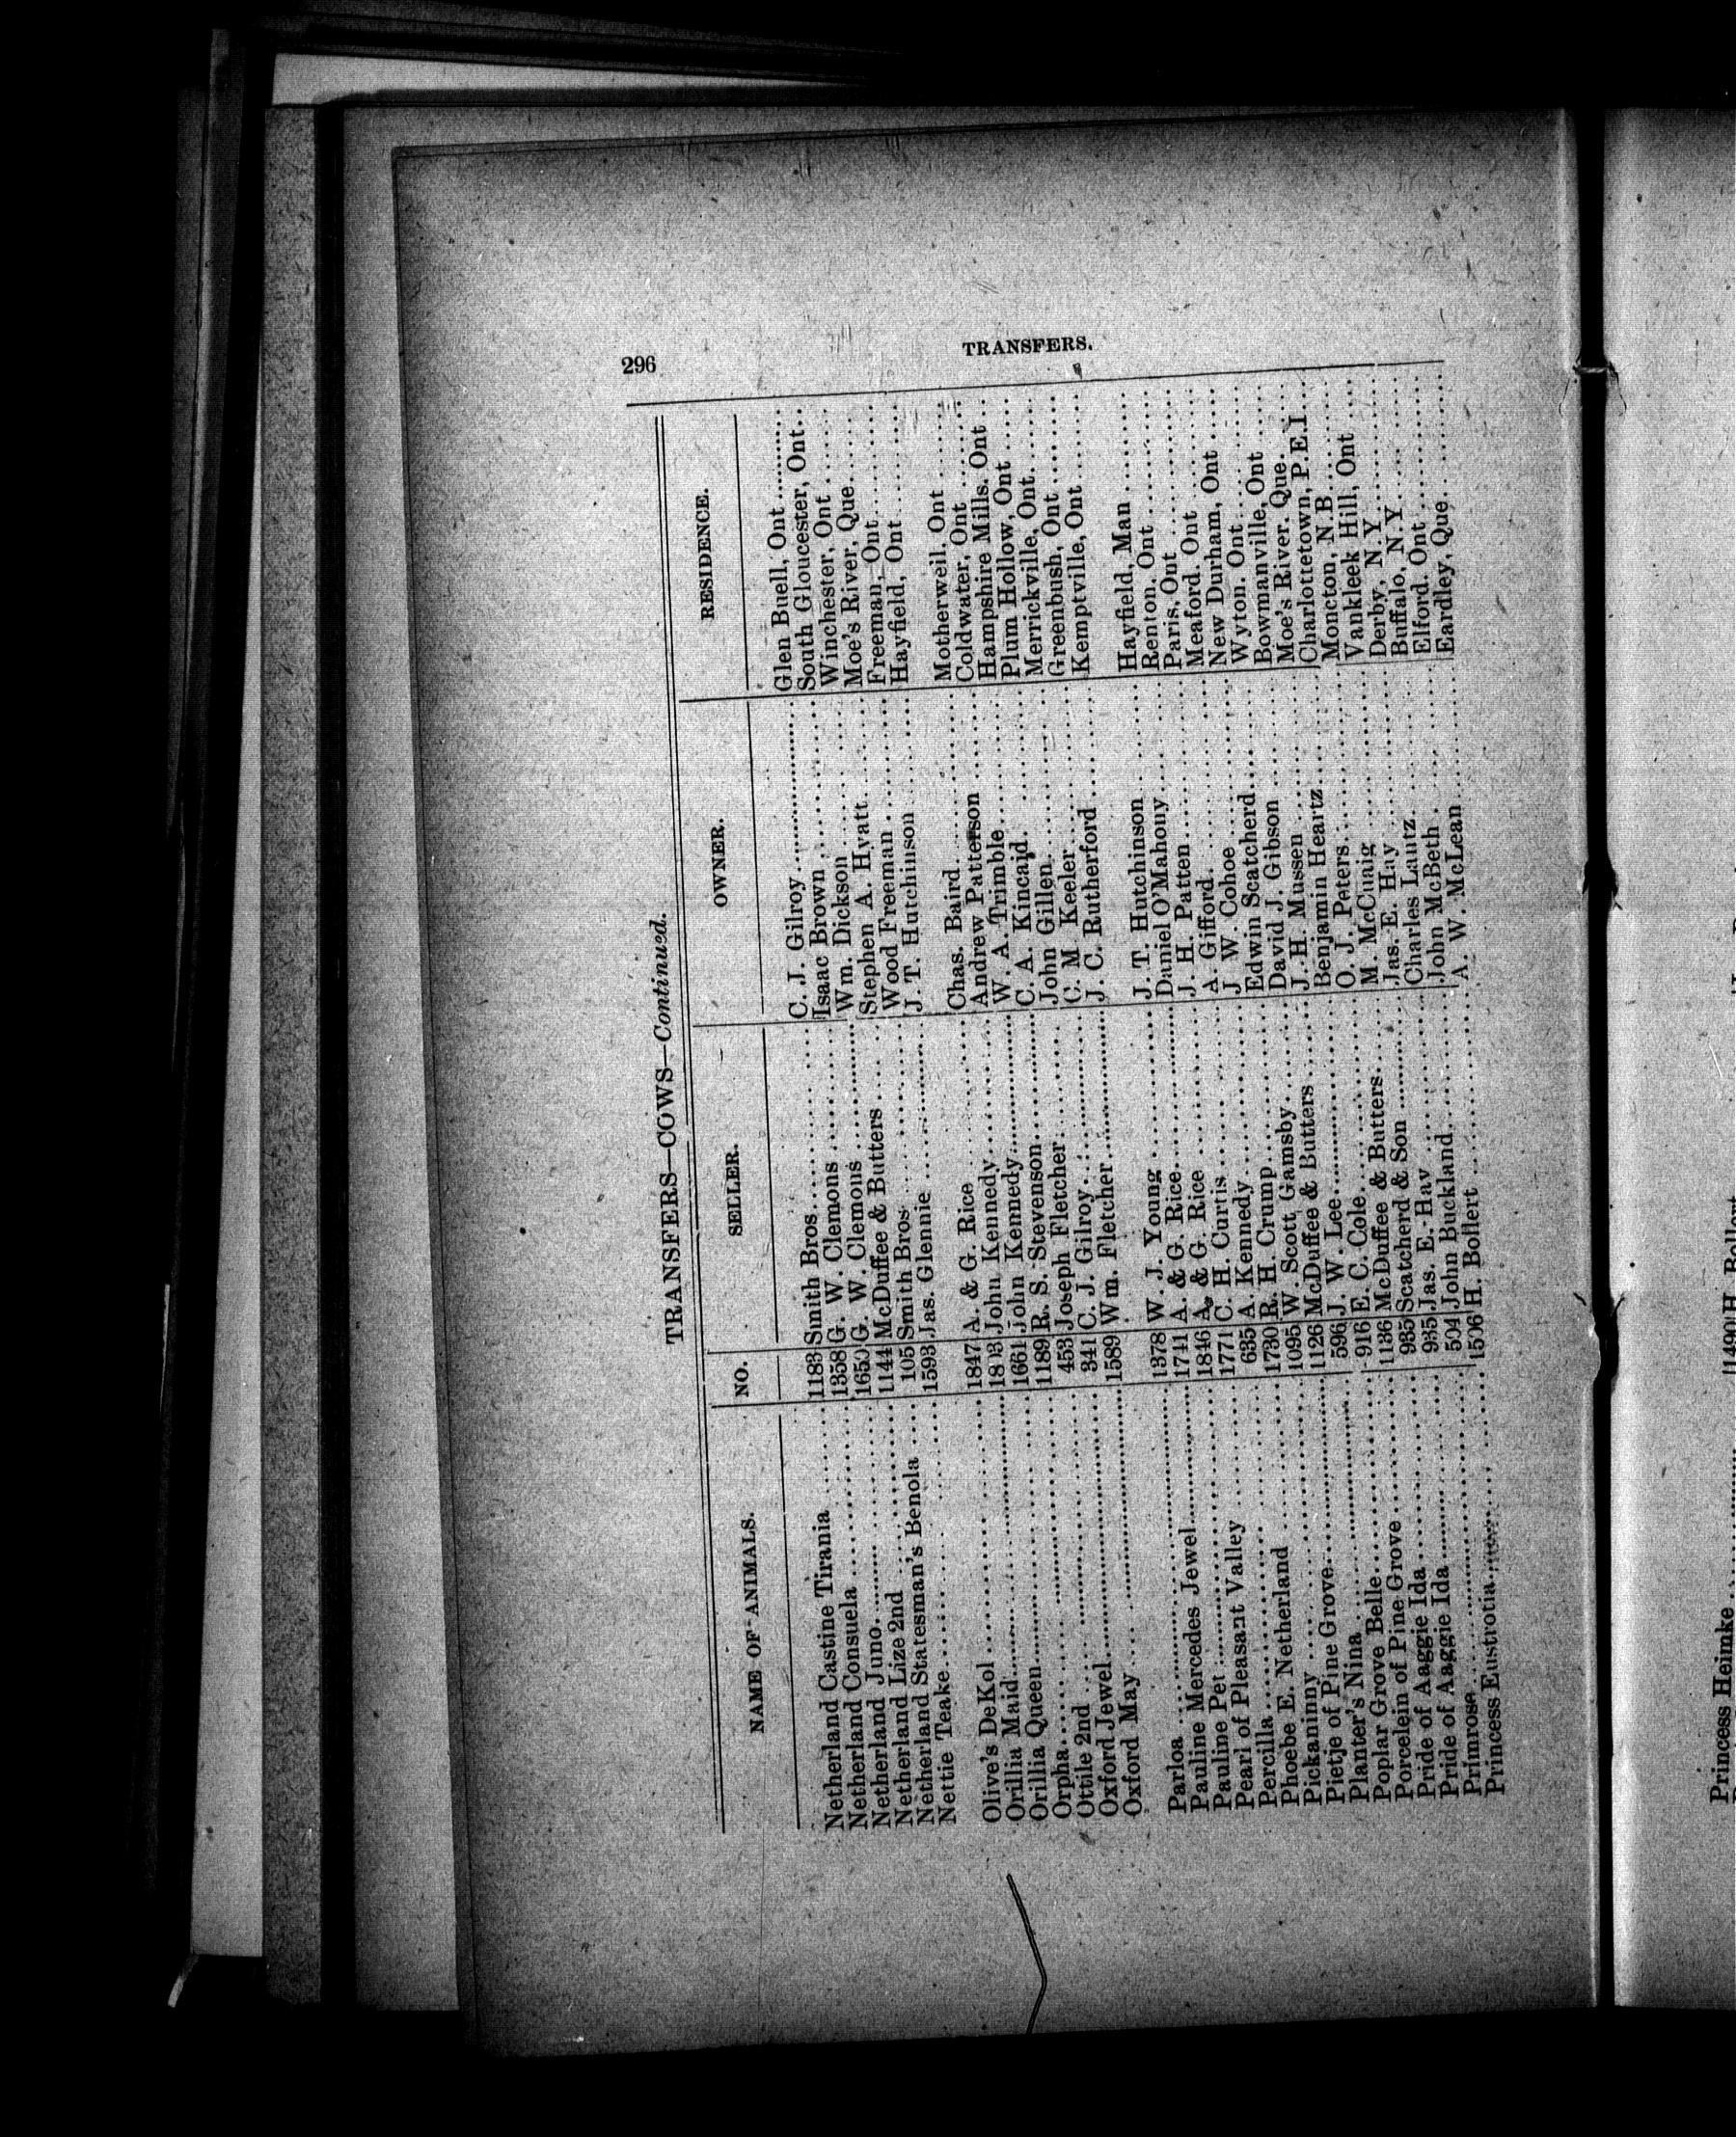 296
TRANSFERS.
TRANSFERS—COWS—Continued.
NAME OF ANIMALS. NO. SELLER. OWNER. RESIDENCE.
Netherland Castine Tirania 1183 Smith Bros. C. J. Gilroy Glen Buell, Ont
Netherland Consuela 1358 G. W. Clemons Isaac Brown South Gloucester, Ont
Netherland Juno 1650 G. W. Clemons Wm. Dickson Winchester, Ont
Netherland Lize 2nd 1144 McDuffee & Butters Stephen A. Hyatt Moe's River, Que
Netherland Statesman's Benola 105 Smith Bros Wood Freeman Freeman, Ont
Nettie Teake 1593 Jas. Glennie J. T. Hutchinson Hayfield, Ont
Olive's DeKol 1847 A. & G. Rice Chas. Baird Motherwell, Ont
Orillia Maid 1803 John Kennedy Andrew Patterson Coldwater, Ont
Orilla Queen 1661 John Kennedy W. A. Trimble Hampshire Mills. Ont
Orpha 1189 R. S. Stevenson C. A. Kincaid Plum Hollow, Ont
Ottile 2nd 453 Joseph Fletcher John Gillen Merrickville, Ont
Oxford Jewel 341 C. J. Gilroy C. M Keeler Greenbush, Ont
Oxford May 1589 Wm. Fletcher J. C. Rutherford Kemptville, Ont
Parloa 1378 W. J. Young J. T. Hutchinson Hayfield, Man
Pauline Mercedes Jewel 1741 A. & G. Rice Daniel O'Mahony Renton, Ont
Pauline Pet 1846 A. & G. Rice J. H. Patten Paris, Ont
Pearl of Pleasant Valley 1771 C. H. Curtis A. Gifford Meaford. Ont
Percilla 635 A. Kennedy J W. Cohoe New Durham, Ont
Phoebe E. Netherland 1730 R. H. Crump Edwin Scatcherd Wyton. Ont
Pickaninny 1095 W. Scott Gamsby David J. Gibson Bowmanville, Ont
Pietje of Pine Grove 1126 McDuffee & Butters J. H. Mussen Moe's River. Que
Planter's Nina 596 J. W. Lee Benjamin Heartz Charlottetown, P.E.I
Poplar Grove Belle 916 E. C. Cole O. J. Peters Moncton, N.B
Porcelein of Pine Grove 1136 McDuffee & Butters M. McCuaig Vankleek Hill, Ont
Pride of Aaggie Ida 935 Scatcherd & Son Jas. E. Hay Derby, N.Y
Pride of Aaggie Ida 935 Jas. E. Hav Charles Lautz Buffalo, N.Y
Primrose 504 John Buckland John McBeth Elford. Ont
Princess Eustrotia 1506 H. Bollert A. W. McLean Eardley, Que
Princess Heimke 1490 H.